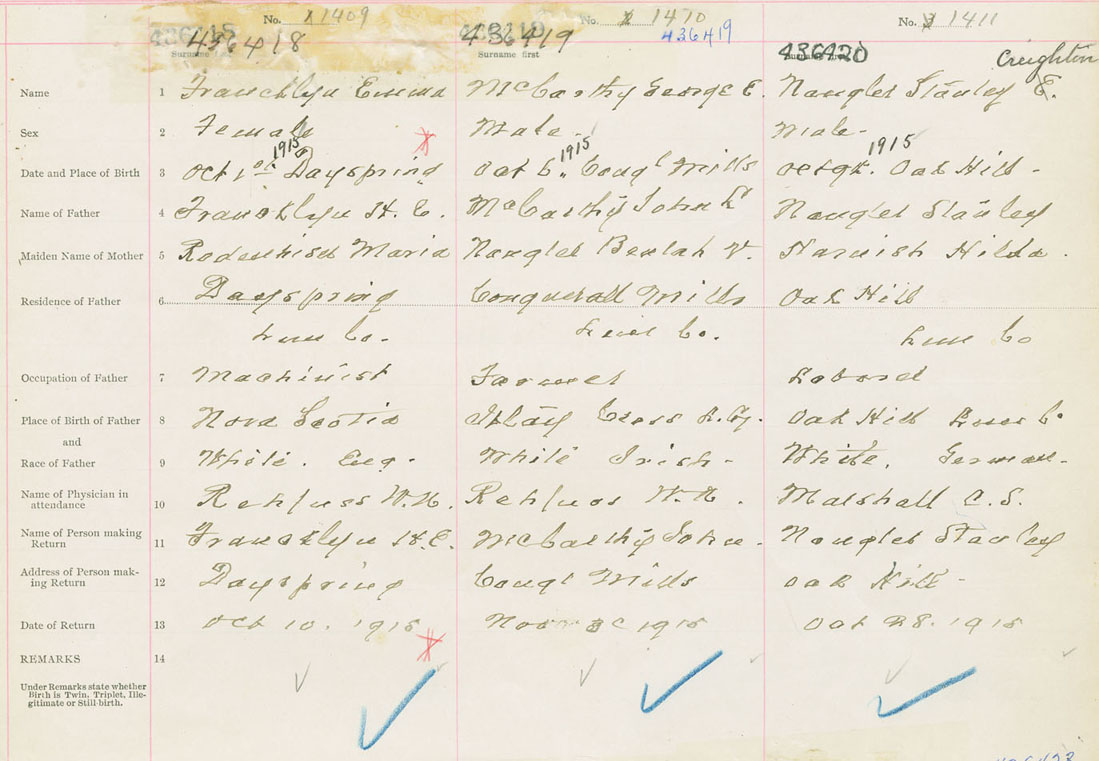 No. X 1409 No. X 1410 No. 3 1411
436418 436419 436419 436420 Creighton
Surname first Surname first
Name 1 Francklyn Emma McCarthy George E. Naugler Stanley E.
Sex 2 Female Male Male
Date and Place of Birth 3 Oct 1st 1915 Dayspring Oct 6. 1915 Conql Mills 1915 Oak Hill
Name of Father 4 Francklyn H. C. McCarthy John Naugler Stanley
Maiden Name of Mother 5 Rodenhiser Maria Naugler Beulah V. Harnish Hilda.
Residence of Father 6 Dayspring Conquerall Mills Oak Hill
Lun Co. Lun Co. Lun Co
Occupation of Father 7 Machinist Farmer Laborer
Place of Birth of Father 8 Nova Scotia Cross Oak Hill Lun Co
and
Race of Father 9 White. Eng. White Irish White. German
Name of Physician in
attendance 10 Rehfuss W.N. Rehfuss W.N. Marshall C. S.
Name of Person making
Return 11 Francklyn H.C. McCarthy John Naugler Stanley
Address of Person mak-
ing Return 12 Dayspring Conql Mills Oak Hill
Date of Return 13 Oct 10. 1915 Nov 1915 Oct 28. 1915
REMARKS 14
Under Remarks state whether
Birth is Twin, Triplet, Ille-
gitimate or Still-birth.